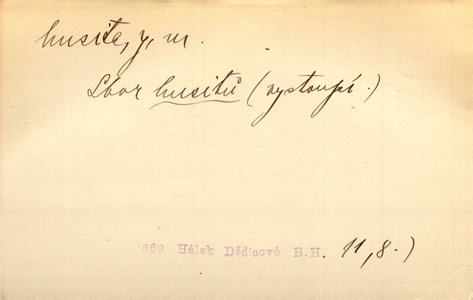 husita, y, m.
Sbor husitů (vystoupí.)
1869 Hálek Dědicové B.H. 11, 8.)